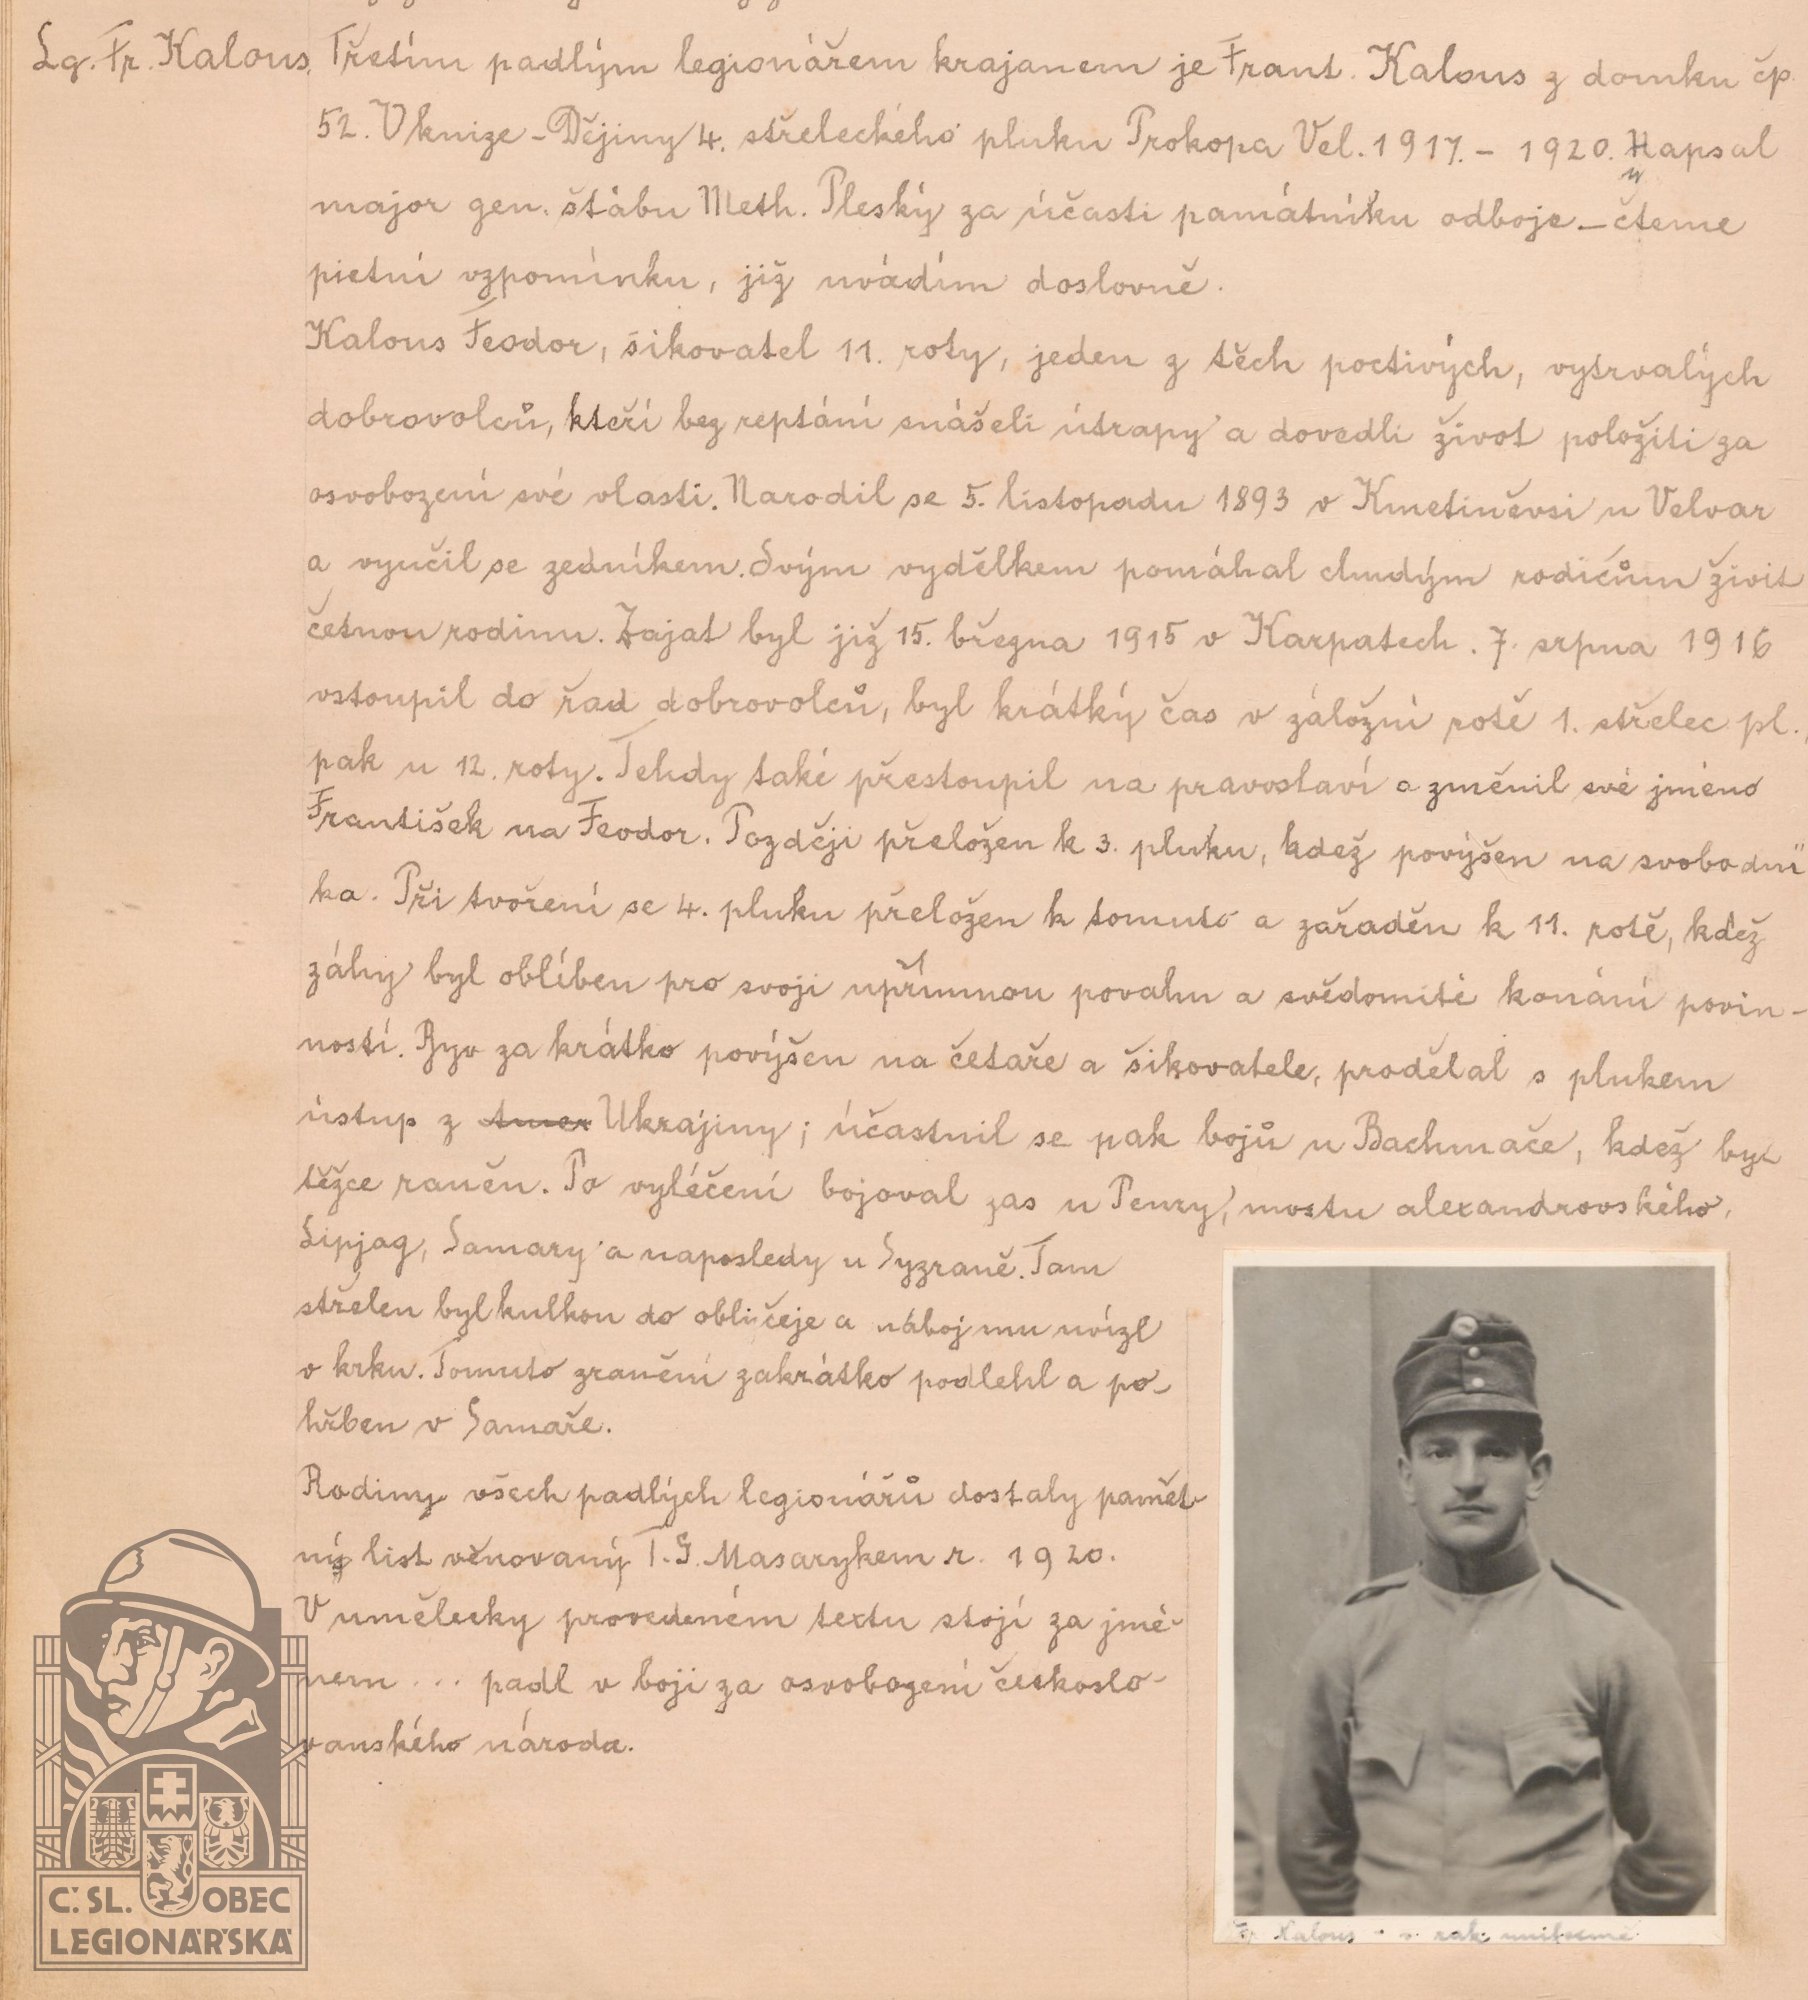 Lg. Fr. Kalous. Třetím padlým legionářem krajanem je Frant. Kalous z domku čp.
52. V knize – Dějiny 4. střeleckého pluku Prokopa Vel. 1917. – 1920. Napsal
major gen. štábu Meth. Pleský za účasti památníku odboje – čteme
pietní vzpomínku, již uvádím doslovně.
Kalous Feodor, šikovatel 11. roty, jeden z těch poctivých, vytrvalých
dobrovolců, kteří bez reptání snášeli útrapy a dovedli život položiti za
osvobození své vlasti. Narodil se 5. listopadu 1893 v Kmetiněvsi u Velvar
a vyučil se zedníkem. Svým vydělkem pomáhal chudým rodičům živit
četnou rodinu. Zajat byl již 15. března 1915 v Karpatech. 7. srpna 1916
vstoupil do řad dobrovolců, byl krátký čas v záložní rotě 1. střelec. pl.,
pak u 12. roty. Tehdy také přestoupil na pravoslaví a změnil své jméno
František na Feodor. Později přeložen k 3. pluku, kdež povýšen na svobodní"
ka. Při tvoření se 4. pluku přeložen k tomuto a zařaděn k 11. rotě, kdež
záhy byl oblíben pro svoji upřímnou povahu a svědomité konání povin-
ností. Byv za krátko povýšen na četaře a šikovatele, prodělal s plukem
ústup z Ukrajiny; účastnil se pak bojů u Bachmače, kdež byl
těžce raněn. Po vyléčení bojoval zas u Penzy, mostu alexandrovského,
Lipjag, Samary a naposledy u Syzraně. Tam
střelen byl kulkou do obličeje a náboj mu uvízl
v krku. Tomuto zranění zakrátko podlehl a po-
hřben v Samaře.
Rodiny všech padlých legionářů dostaly pamět-
ný list věnovaný T. G. Masarykem r. 1920.
V umělecky provedeném textu stojí za jmé-
nem ... padl v boji za osvobození českoslo-
vanského národa.
Fr. Kalous v rak. uniformě
Č. SL. OBEC
LEGIONÁŘSKÁ